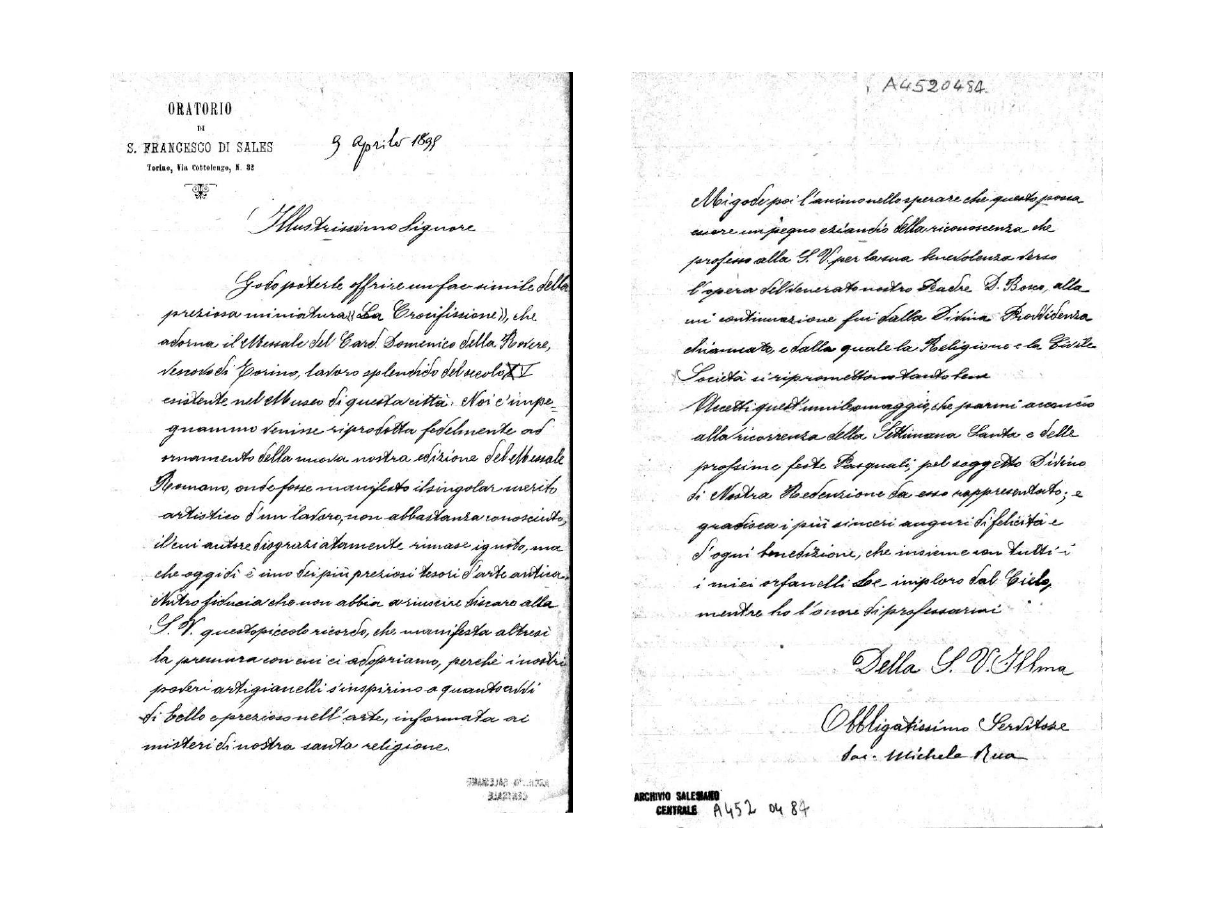 ORATORIO
DI
S. FRANCESCO DI SALES
Torino, Via Cottolengo, N. 32
9 Aprile 1895
Illustrissimo Signore
Godo poterle offrire un fac-simile della
preziosa miniatura «La Crocifissione», che
adorna il Messale del Card. Domenico della Rovere,
vescovo di Torino, lavoro splendido del secolo XV
esistente nel Museo di questa città. Noi c'impe=
gnammo venisse riprodotta fedelmente ad
ornamento della nuova nostra edizione del Messale
Romano, onde fosse manifesto il singolar merito
artistico d'un lavoro, non abbastanza conosciuto,
il cui autore disgraziatamente rimase ignoto, ma
che oggidì è uno dei più preziosi tesori d'arte antica.
Nutro fiducia che non abbia a riuscire discaro alla
S. V. questo piccolo ricordo, che manifesta altresì
la premura con cui ci adopriamo, perchè i nostri
poveri artigianelli s'inspirino a quanto avvi
di bello e prezioso nell'arte, informata ai
misteri di nostra santa religione.
ARCHIVIO SALESIANO
CENTRALE
A4520484
Mi gode poi l'animo nello sperare che questo possa
essere un pegno eziandio della riconoscenza che
professo alla S. V. per la sua benevolenza verso
l'opera del venerato nostro Padre D. Bosco, alla
cui continuazione fui dalla Divina Provvidenza
chiamato, e dalla quale la Religione e la Civile
Società si ripromettono tanto bene
Accetti quest'umile omaggio, che parmi acconcio
alla ricorrenza della Settimana Santa e delle
prossime feste Pasquali, pel soggetto Divino
di Nostra Redenzione da esso rappresentato; e
gradisca i più sinceri auguri di felicità e
d'ogni benedizione, che insieme con tutti i
i miei orfanelli Le imploro dal Cielo,
mentre ho l'onore di professarmi
Della S. V. Ill.ma
Obbligatissimo Servitore
Sac. Michele Rua
ARCHIVIO SALESIANO
CENTRALE A452 04 84